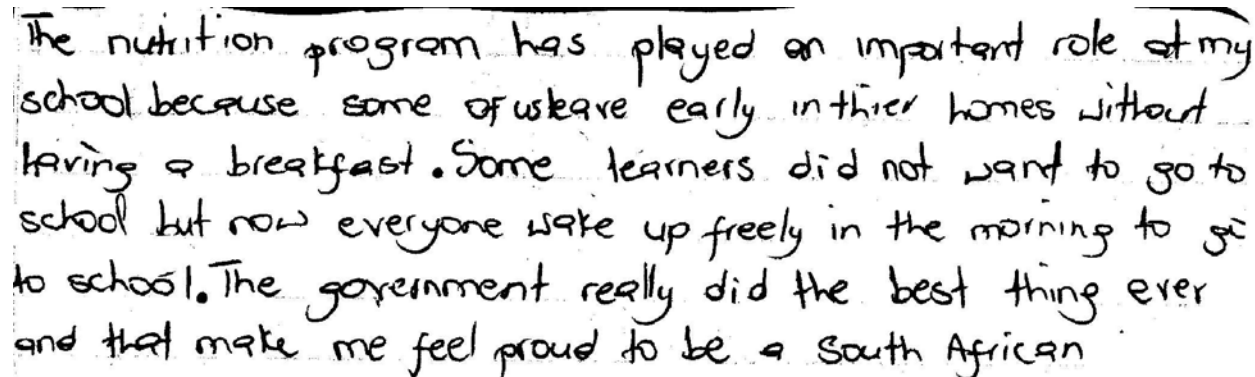 The nutrition program has played an important role at my
school because some of us leave early in thier homes without
having a breakfast. Some learners did not want to go to
school but now everyone wake up freely in the morning to go
to school. The government really did the best thing ever
and that make me feel proud to be a South African